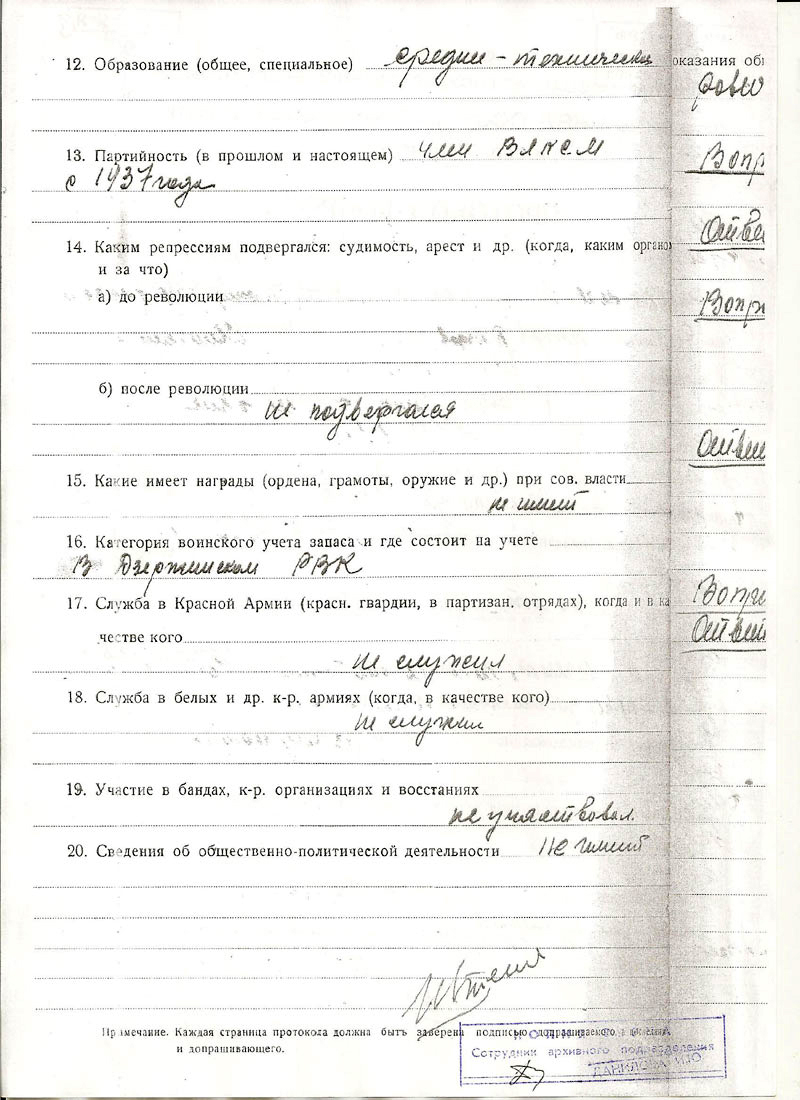 12. Образование (общее, специальное) средне-техническ
13. Партийность (в прошлом и настоящем) член ВЛКСМ
с 1937 года
14. Каким репрессиям подвергался: судимость, арест и др. (когда, каким органо
и за что)
а) до революции
б) после революции
не подвергался
15. Какие имеет награды (ордена, грамоты, оружие и др.) при сов. власти
не имеет
16. Категория воинского учета запаса и где состоит на учете
В Дзержинском РВК
17. Служба в Красной Армии (красн. гвардии, в партизан. отрядах), когда и в ка
честве кого
не служил
18. Служба в белых и др. к-р. армиях (когда, в качестве кого)
не служил
19. Участие в бандах, к-р. организациях и восстаниях
не участвовал
20. Сведения об общественно-политической деятельности не имеет
Примечание. Каждая страница протокола должна быть заверена подписью допрашиваемого
и допрашивающего.
Сотрудник архивного подразделения
ДАНИЛОВА
оказания об
Вопр
Ответ
Вопр
Ответ
Вопр
Ответ